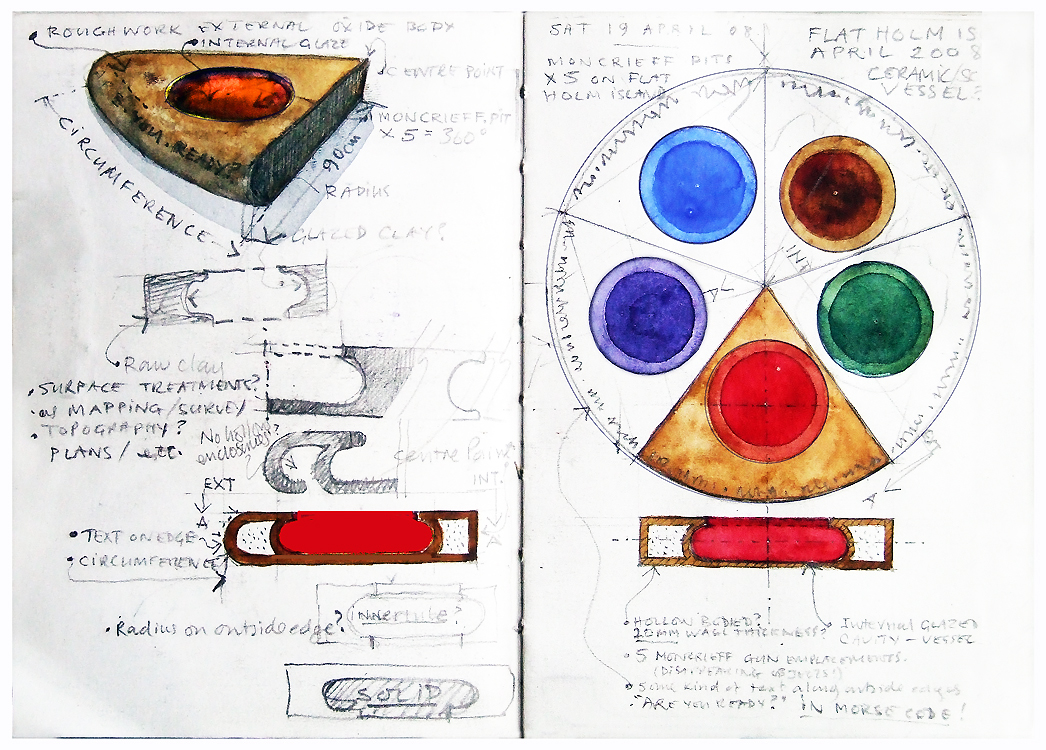 ROUGHWORK EXTERNAL OXIDE BODY
INTERNAL GLAZE
CENTRE POINT
MONCRIEFF. PIT
X 5 = 360°
90cm
RADIUS
YOU. READY?
CIRCUMFERENCE
GLAZED CLAY?
Raw Clay
SURFACE TREATMENTS?
as MAPPING/SURVEY
TOPOGRAPHY?
PLANS/ etc.
No hollow
enclosures?
Centre Point
INT.
EXT
A
A
TEXT ON EDGE
CIRCUMFERENCE
innertube?
Radius on outside edge?
SOLID
SAT 19 APRIL 08.
FLAT HOLM IS
APRIL 2008
CERAMIC/SC
VESSEL?
MONCRIEFF PITS
X 5 ON FLAT
HOLM ISLAND
INT
A
A
A
HOLLOW BODIED?
20MM WALL THICKNESS?
INTERNAL GLAZED
CAVITY - VESSEL
5 MONCRIEFF GUN EMPLACEMENTS.
(DISAPPEARING OBJECTS!)
Some kind of text along outside edges
"ARE YOU READY?" IN MORSE CODE!